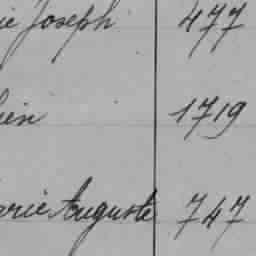 ie Joseph 477
ien 1719
arie Auguste 747